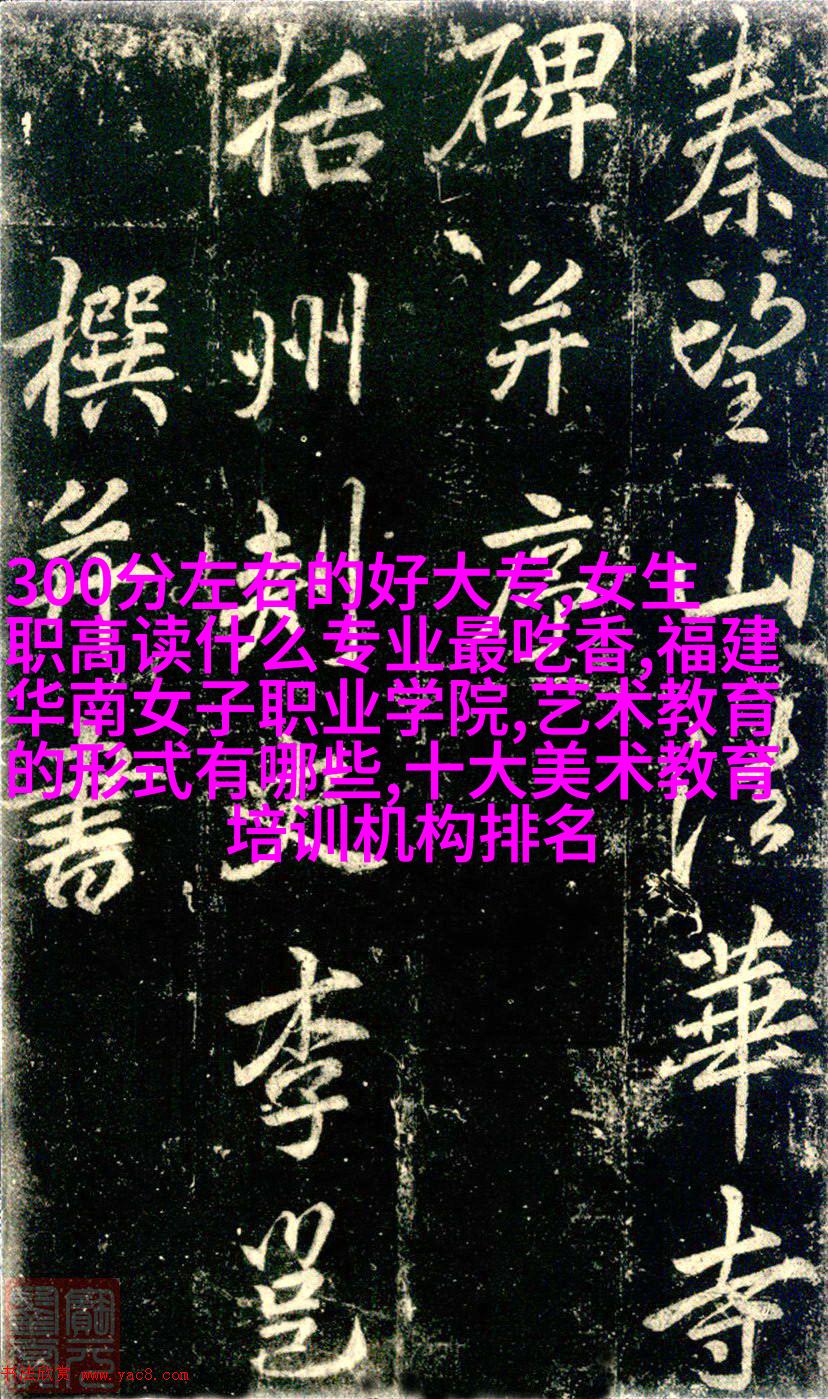 秦望山法華寺
碑并序
括州刺史李邕
撰并書
300分左右的好大专,女生
职高读什么专业最吃香,福建
华南女子职业学院,艺术教育
的形式有哪些,十大美术教育
培训机构排名
书法欣赏 www.yac8.com